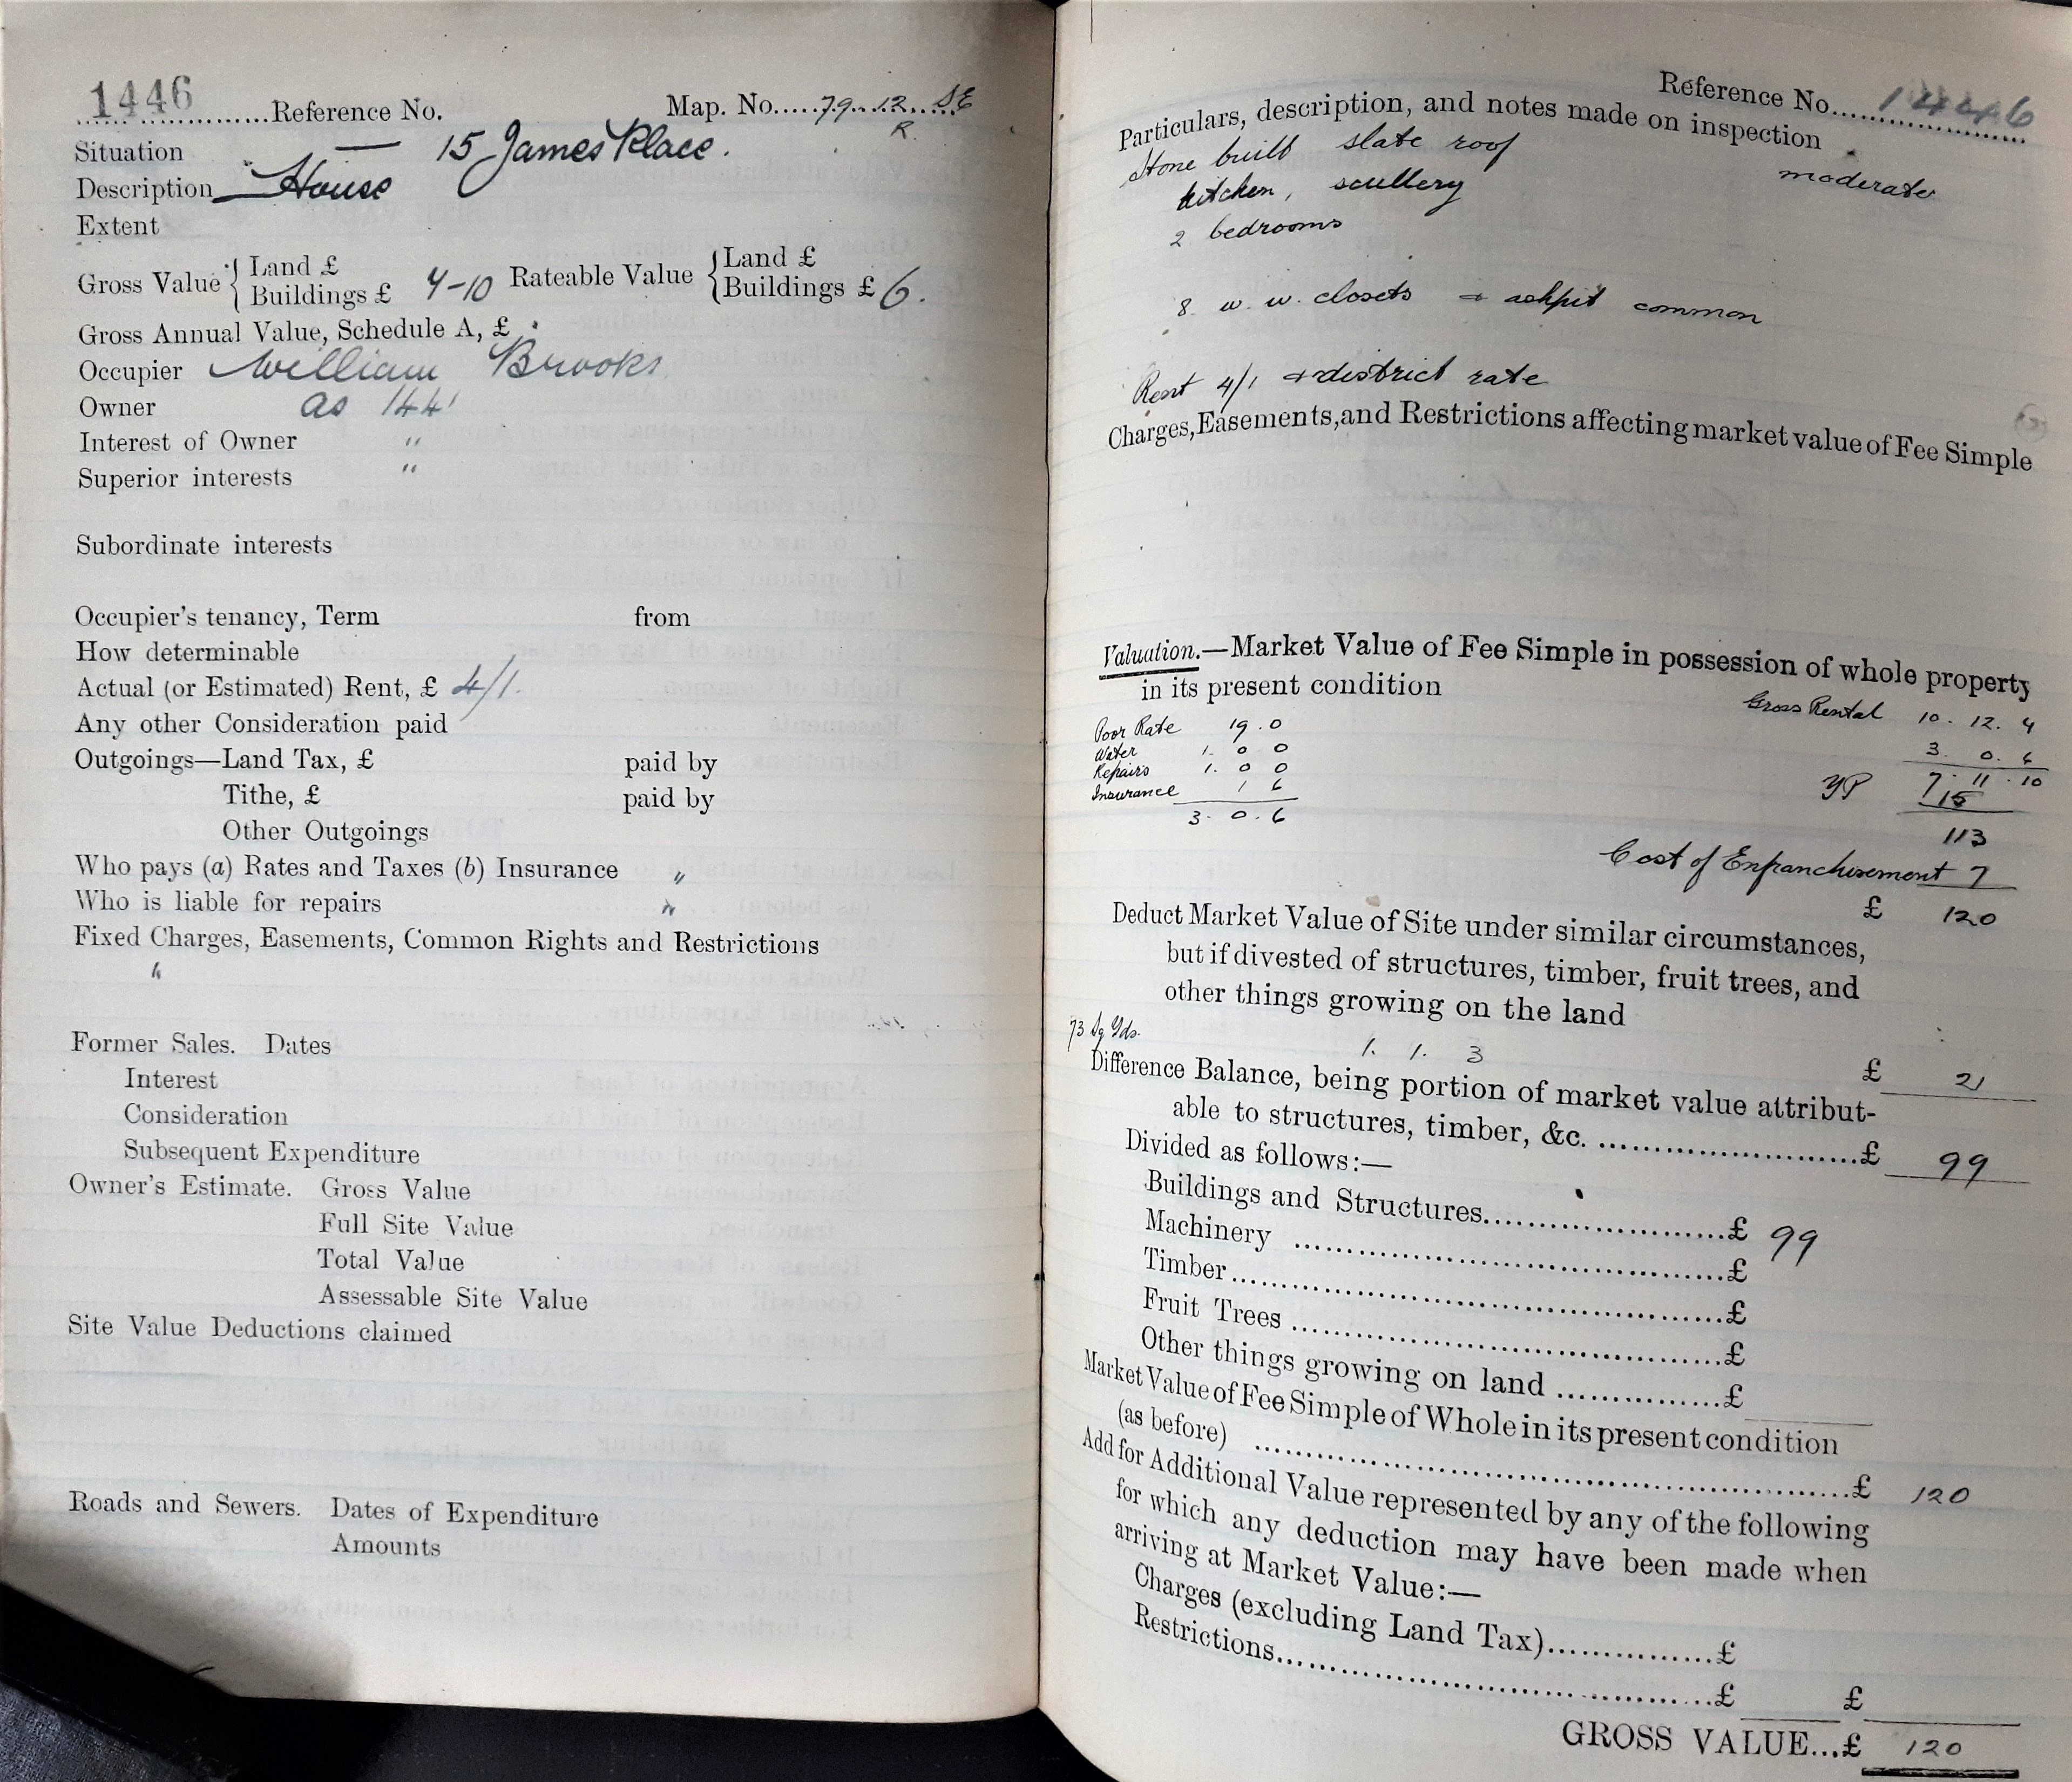 1446 Reference No. Map. No. 79. 12. SE
R.
Situation — 15 James Place.
Description House
Extent
Gross Value { Land £ Rateable Value { Land £
Buildings £ 4-10 Buildings £ 6.
Gross Annual Value, Schedule A, £
Occupier William Brooks
Owner as 144
Interest of Owner "
Superior interests "
Subordinate interests
Occupier's tenancy, Term from
How determinable
Actual (or Estimated) Rent, £ 4/1.
Any other Consideration paid
Outgoings—Land Tax, £ paid by
Tithe, £ paid by
Other Outgoings
Who pays (a) Rates and Taxes (b) Insurance "
Who is liable for repairs "
Fixed Charges, Easements, Common Rights and Restrictions
"
Former Sales. Dates
Interest
Consideration
Subsequent Expenditure
Owner's Estimate. Gross Value
Full Site Value
Total Value
Assessable Site Value
Site Value Deductions claimed
Roads and Sewers. Dates of Expenditure
Amounts
Reference No. 1446
Particulars, description, and notes made on inspection
Stone built slate roof moderate
kitchen, scullery
2 bedrooms
8 w. w. closets + ashpit common
Rent 4/1 + district rate
Charges, Easements, and Restrictions affecting market value of Fee Simple
Valuation.—Market Value of Fee Simple in possession of whole property
in its present condition
Gross Rental 10. 12. 4
Poor Rate 19. 0
3. 0. 6
Water 1. 0 0
Repairs 1. 0 0
YP 7. 11. 10
Insurance 1 6
15
3. 0. 6
113
Cost of Enfranchisement 7
£ 120
Deduct Market Value of Site under similar circumstances,
but if divested of structures, timber, fruit trees, and
other things growing on the land
73 Sq Yds.
1. 1. 3
£ 21
Difference Balance, being portion of market value attribut-
able to structures, timber, &c. £ 99
Divided as follows:—
Buildings and Structures £ 99
Machinery £
Timber £
Fruit Trees £
Other things growing on land £
Market Value of Fee Simple of Whole in its present condition
(as before) £ 120
Add for Additional Value represented by any of the following
for which any deduction may have been made when
arriving at Market Value:—
Charges (excluding Land Tax) £
Restrictions £ £
GROSS VALUE...£ 120